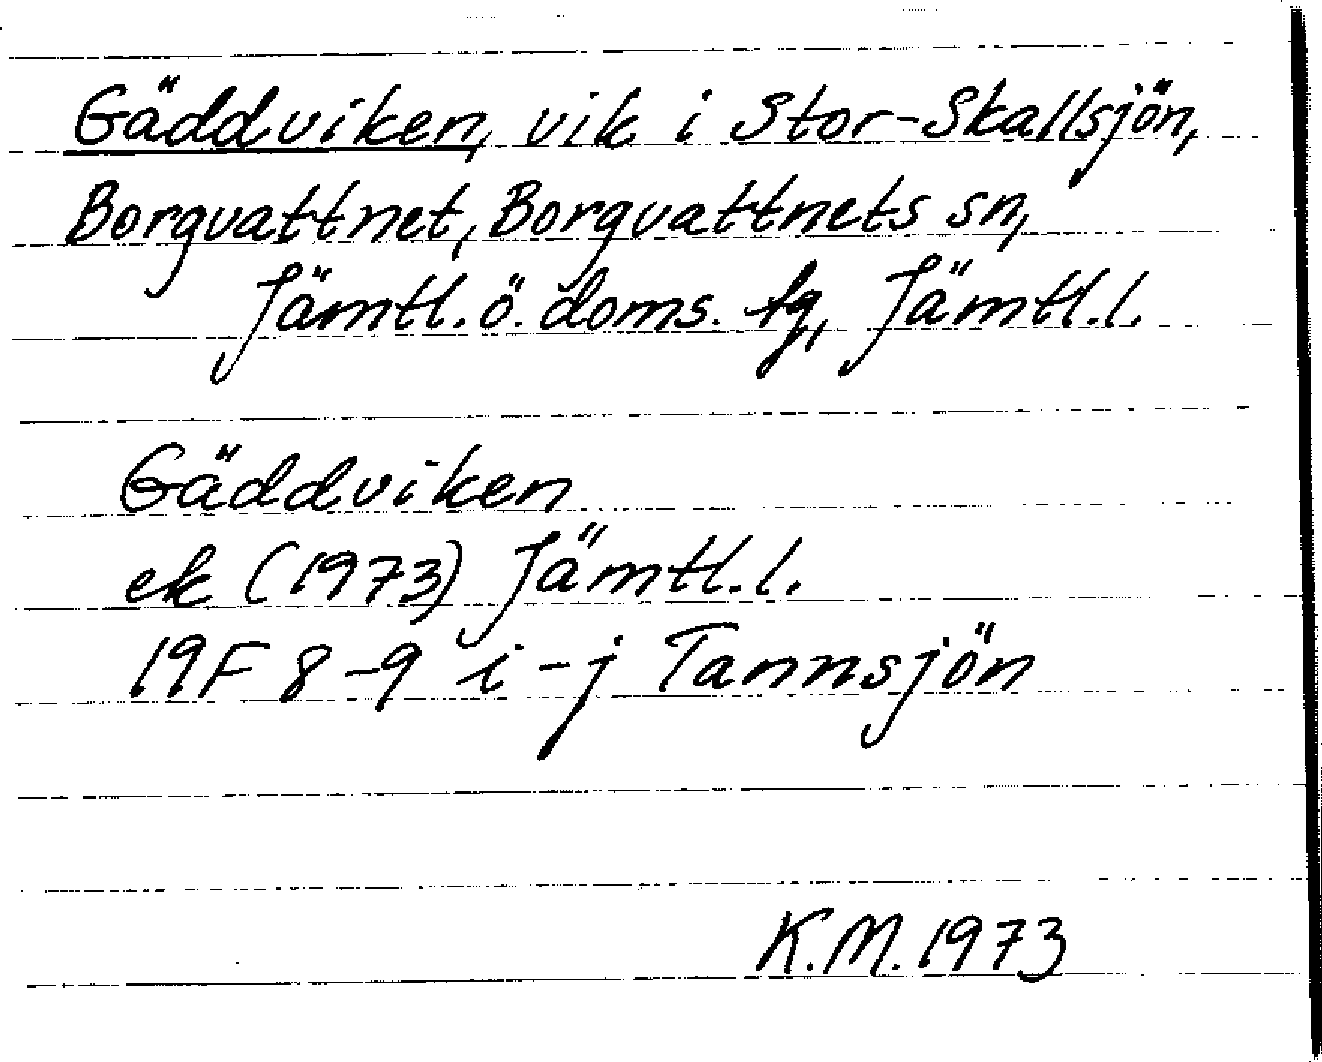 Gäddviken, vik i Stor-Skallsjön,
Borgvattnet, Borgvattnets sn,
Jämtl. ö. doms. tg, Jämtl. l.
Gäddviken
ek (1973) Jämtl. l.
19F 8-9 i-j Tannsjön
K.M. 1973